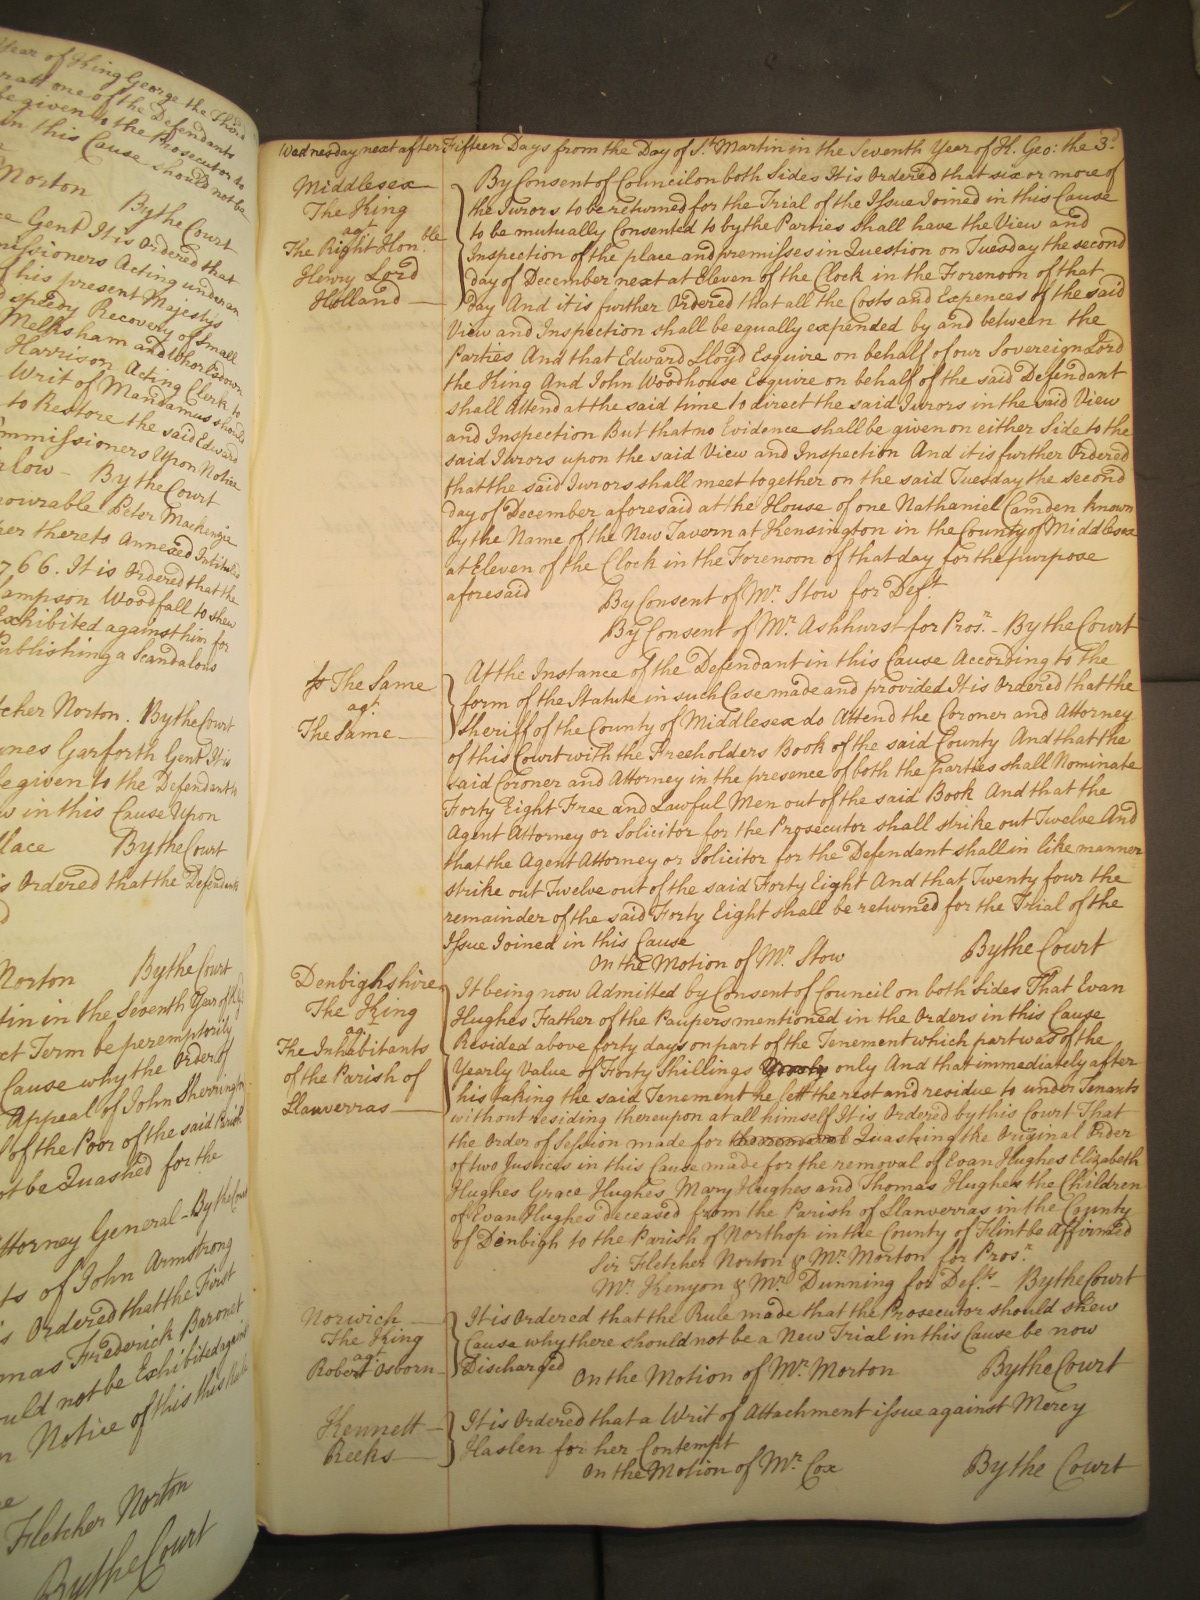 Year of King George the Third
one of the Defendants
be given to the Prosecutor to
in this Cause should not be
Norton By the Court
Gent It is Ordered that
missioners Acting under an
his present Majestys
speedy Recovery of Small
Melksham and Whorlsdown
Harrison Acting Clerk to
Writ of Mandamus should
to Restore the said Edward
mmissioners Upon Notice
rlow - By the Court
nourable Peter Mackenzie
thereto Annexed Intituled
766. It is Ordered that the
ampson Woodfall to shew
Exhibited against him for
Publishing a Scandalous
tcher Norton. By the Court
mes Garforth Gent It is
be given to the Defendants
w in this Cause Upon
llace By the Court
is Ordered that the Defendants
Norton By the Court
tin in the Seventh Year of K. G.
xt Term be peremptorily
Cause why the Order of
Appeal of John Sherrington
of the Poor of the said Parish
ot be Quashed for the
ttorney General - By the Court
ts of John Armstrong
is Ordered that the First
mas Frederick Baronet
ould not be Exhibited against
n Notice of this Rule
Fletcher Norton
By the Court
Wednesday next after Fifteen Days from the Day of St. Martin in the Seventh Year of K. Geo: the 3d.
Middlesex
The King
agt.
The Right Honble
Henry Lord
Holland
By Consent of Council on both Sides It is Ordered that six or more of
the Jurors to be returned for the Trial of the Issue Joined in this Cause
to be mutually Consented to by the Parties shall have the View and
Inspection of the place and premisses in Question on Tuesday the second
day of December next at Eleven of the Clock in the Forenoon of that
day And it is further Ordered that all the Costs and Expences of the said
View and Inspection shall be equally expended by and between the
Parties And that Edward Lloyd Esquire on behalf of our Sovereign Lord
the King And John Woodhouse Esquire on behalf of the said Defendant
shall Attend at the said time to direct the said Jurors in the said View
and Inspection But that no Evidence shall be given on either Side to the
said Jurors upon the said View and Inspection And it is further Ordered
that the said Jurors shall meet together on the said Tuesday the second
day of December aforesaid at the House of one Nathaniel Camden known
by the Name of the New Tavern at Kensington in the County of Middlesex
at Eleven of the Clock in the Forenoon of that day for the purpose
aforesaid By Consent of Mr. Stow for Deft.
By Consent of Mr. Ashhurst for Prosr. - By the Court
The Same
agt.
The Same
At the Instance of the Defendant in this Cause According to the
form of the Statute in such Case made and provided It is Ordered that the
Sheriff of the County of Middlesex do Attend the Coroner and Attorney
of this Court with the Freeholders Book of the said County And that the
said Coroner and Attorney in the presence of both the parties shall Nominate
Forty Eight Free and Lawful Men out of the said Book And that the
Agent Attorney or Solicitor for the Prosecutor shall strike out Twelve And
that the Agent Attorney or Solicitor for the Defendant shall in like manner
strike out Twelve out of the said Forty Eight And that Twenty four the
remainder of the said Forty Eight shall be returned for the Trial of the
Issue Joined in this Cause
On the Motion of Mr. Stow By the Court
Denbighshire
The King
agt.
The Inhabitants
of the Parish of
Llanverras
It being now Admitted by Consent of Council on both Sides That Evan
Hughes Father of the Paupers mentioned in the Orders in this Cause
Resided above forty days on part of the Tenement which part was of the
Yearly Value of Forty Shillings Yearly only And that immediately after
his taking the said Tenement he lett the rest and residue to under Tenants
without residing thereupon at all himself It is Ordered by this Court That
the Order of Session made for the removal Quashing the Original Order
of two Justices in this Cause made for the removal of Evan Hughes Elizabeth
Hughes Grace Hughes Mary Hughes and Thomas Hughes the Children
of Evan Hughes deceased from the Parish of Llanverras in the County
of Denbigh to the Parish of Northop in the County of Flint be Affirmed
Sir Fletcher Norton & Mr. Morton for Prosr.
Mr. Kenyon & Mr. Dunning for Defts. - By the Court
Norwich
The King
agt.
Robert Osborn
It is Ordered that the Rule made that the Prosecutor should shew
Cause why there should not be a New Trial in this Cause be now
Discharged On the Motion of Mr. Morton By the Court
Kennett
Reeks
It is Ordered that a Writ of Attachment issue against Mercy
Haslen for her Contempt
On the Motion of Mr. Cox By the Court